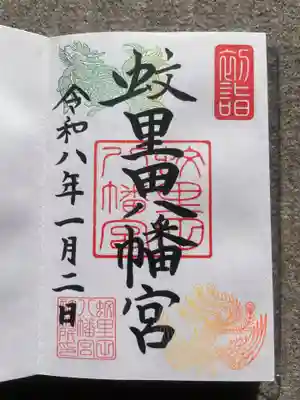 初詣
蚊里田八幡宮
蚊里田
八幡宮
令和八年一月二日
蚊里田
八幡宮